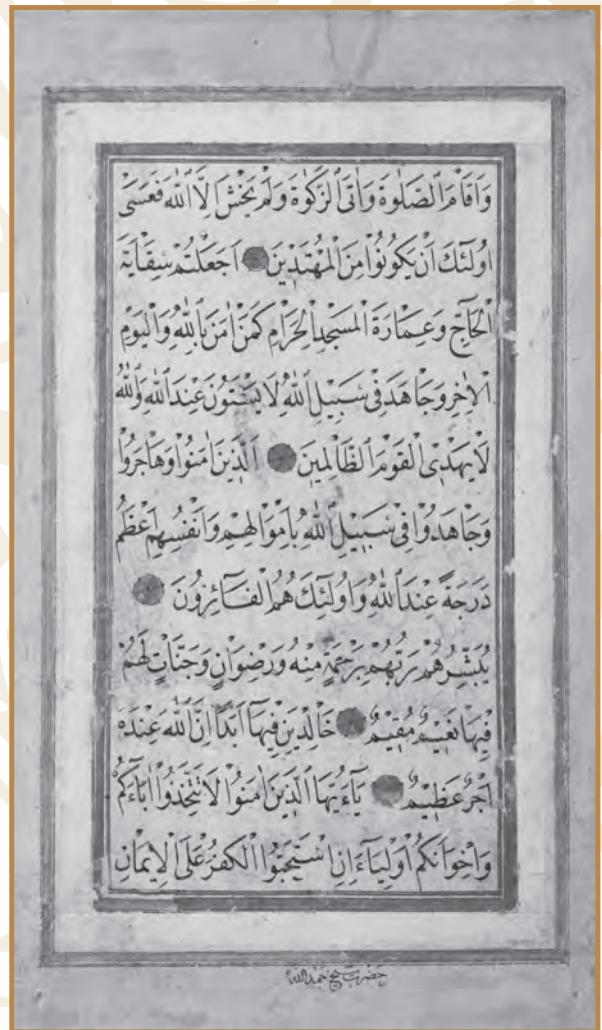 وَاَقَامَ الصَّلٰوةَ وَاٰتَى الزَّكٰوةَ وَلَمْ يَخْشَ اِلَّا اللّٰهَ فَعَسٰى
اُولٰئِكَ اَنْ يَكُونُوا مِنَ الْمُهْتَدٖينَ اَجَعَلْتُمْ سِقَايَةَ
الْحَٓاجِّ وَعِمَارَةَ الْمَسْجِدِ الْحَرَامِ كَمَنْ اٰمَنَ بِاللّٰهِ وَالْيَوْمِ
الْاٰخِرِ وَجَاهَدَ فٖى سَبٖيلِ اللّٰهِ لَا يَسْتَوُونَ عِنْدَ اللّٰهِ وَاللّٰهُ
لَا يَهْدِى الْقَوْمَ الظَّالِمٖينَ اَلَّذٖينَ اٰمَنُوا وَهَاجَرُوا
وَجَاهَدُوا فٖى سَبٖيلِ اللّٰهِ بِاَمْوَالِهِمْ وَاَنْفُسِهِمْ اَعْظَمُ
دَرَجَةً عِنْدَ اللّٰهِ وَاُولٰئِكَ هُمُ الْفَٓائِزُونَ
يُبَشِّرُهُمْ رَبُّهُمْ بِرَحْمَةٍ مِنْهُ وَرِضْوَانٍ وَجَنَّاتٍ لَهُمْ
فٖيهَا نَعٖيمٌ مُقٖيمٌ خَالِدٖينَ فٖيهَٓا اَبَدًا اِنَّ اللّٰهَ عِنْدَهُٓ
اَجْرٌ عَظٖيمٌ يَٓا ءَيُّهَا الَّذٖينَ اٰمَنُوا لَا تَتَّخِذُوٓا اٰبَٓاءَكُمْ
وَاِخْوَانَكُمْ اَوْلِيَٓاءَ اِنِ اسْتَحَبُّوا الْكُفْرَ عَلَى الْاٖيمَانِ
حضرت شيخ حمد الله